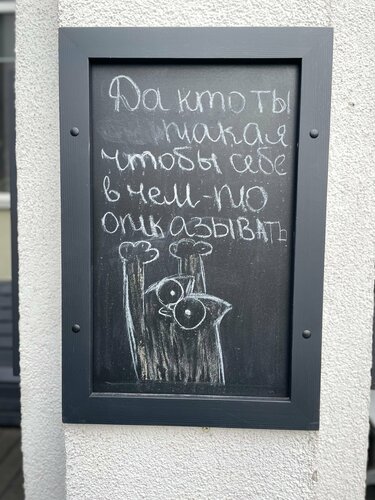 Да кто ты
такая
чтобы себе
в чем-то
отказывать